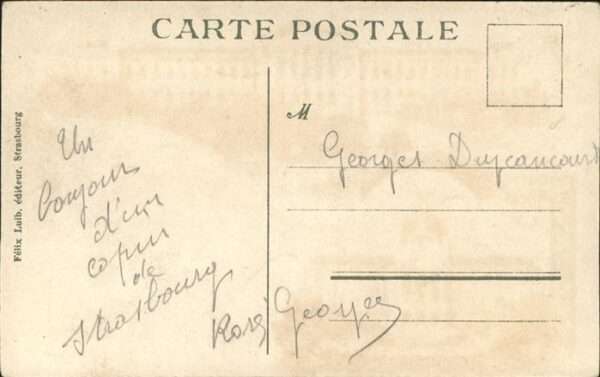 CARTE POSTALE
Félix Luib, éditeur, Strasbourg
Un
bonjour
d'un
copin
de
Strasbourg
M
Georges
Georges